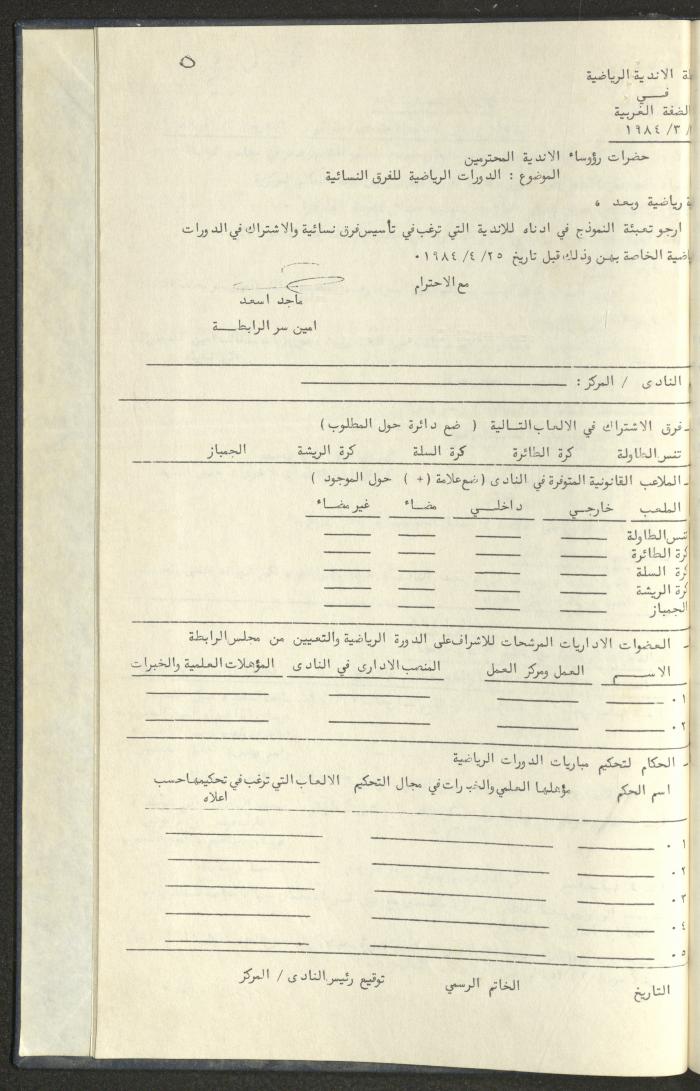 ٥
الاندية الرياضية
فــــي
الضفة الغربية
/٣/ ١٩٨٤
حضرات رؤوساء الاندية المحترمين
الموضوع : الدورات الرياضية للفرق النسائية
رياضية وبعد ،
ارجو تعبئة النموذج في ادناه للاندية التي ترغب في تأسيس فرق نسائية والاشتراك في الدورات
الخاصة بهن وذلك قبل تاريخ ٢٥/ ٤/ ١٩٨٤٠
مع الاحترام
ماجد اسعد
امين سر الرابطـــة
النادى / المركز :
فرق الاشتراك في الالعاب التـالية ( ضع دائرة حول المطلوب)
تنس الطاولة كرة الطائرة كرة السلة كرة الريشة الجمباز
ـ الملاعب القانونية المتوفرة في النادى (ضع علامة (+ ) حول الموجود )
الملعب خارجـي داخلــي مضـاء غير مضـاء
تنس الطاولة
كرة الطائرة
كرة السلة
كرة الريشة
الجمباز
ـ العضوات الاداريات المرشحات للاشراف على الدورة الرياضية والتعيين من مجلس الرابطة
الاســـم العمل ومركز العمل المنصب الادارى في النادى المؤهلات العلمية والخبرات
١ ٠
٢ ٠
ـ الحكام لتحكيم مباريات الدورات الرياضية
اسم الحكم مؤهلها العلمي والخبرات في مجال التحكيم الالعاب التي ترغب في تحكيمها حسب
اعلاه
١ ٠
٢ ٠
٣ ٠
٤ ٠
٥ ٠
التاريخ الخاتم الرسمي توقيع رئيس النادى / المركز